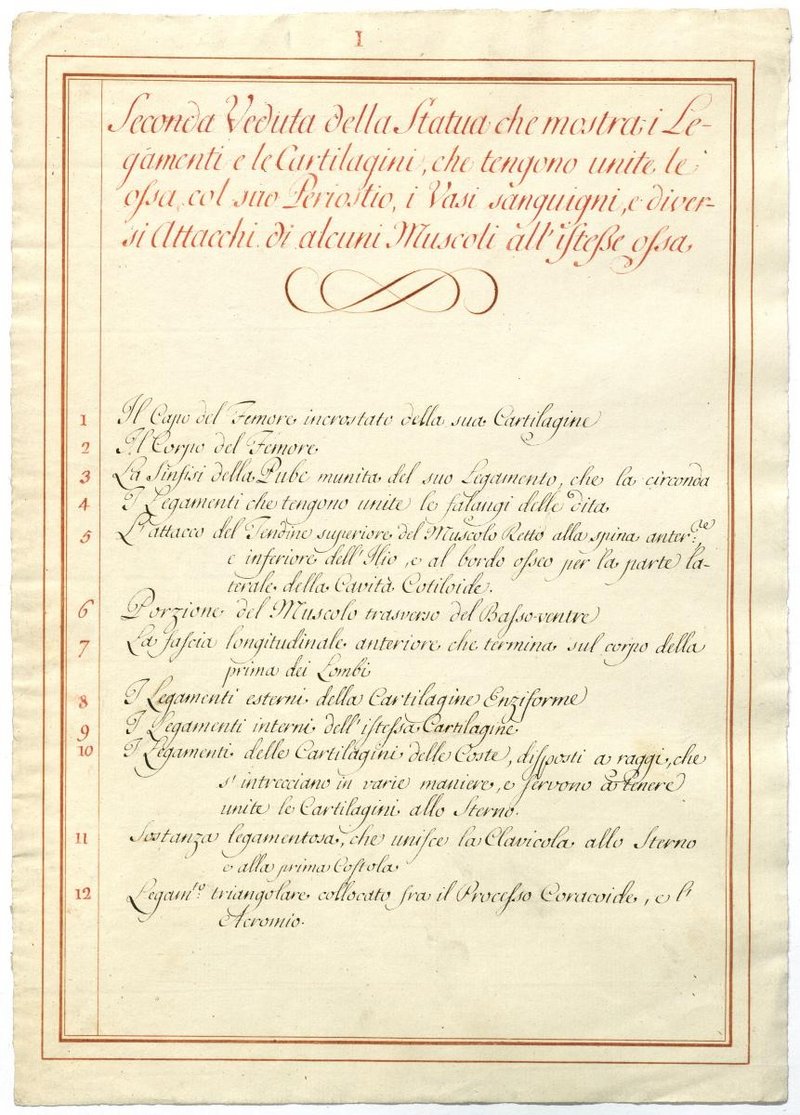 I
Seconda Veduta della Statua che mostra i Le-
gamenti e le Cartilagini, che tengono unite le
ossa, col suo Periostio, i Vasi sanguigni, e diver-
si Attacchi di alcuni Muscoli all'istesse ossa
1 Il Capo del Femore incrostato della sua Cartilagine
2 Il Corpo del Femore
3 La Sinfisi della Pube munita del suo Legamento, che la circonda
4 I Legamenti che tengono unite le falangi delle dita
5 L'attacco del Tendine superiore del Muscolo Retto alla spina anter.re
e inferiore dell'Ilio, e al bordo osseo per la parte la-
terale della Cavità Cotiloide.
6 Porzione del Muscolo trasverso del Basso-ventre
7 La fascia longitudinale anteriore che termina sul corpo della
prima dei Lombi
8 I Legamenti esterni della Cartilagine Enziforme
9 I Legamenti interni dell'istessa Cartilagine
10 I Legamenti delle Cartilagini delle Coste, disposti a raggi, che
s'intrecciano in varie maniere, e servono a tenere
unite le Cartilagini allo Sterno.
11 Sostanza legamentosa, che unisce la Clavicola allo Sterno
e alla prima Costola
12 Legam.to triangolare collocato fra il Processo Coracoide, e l'
Acromio.